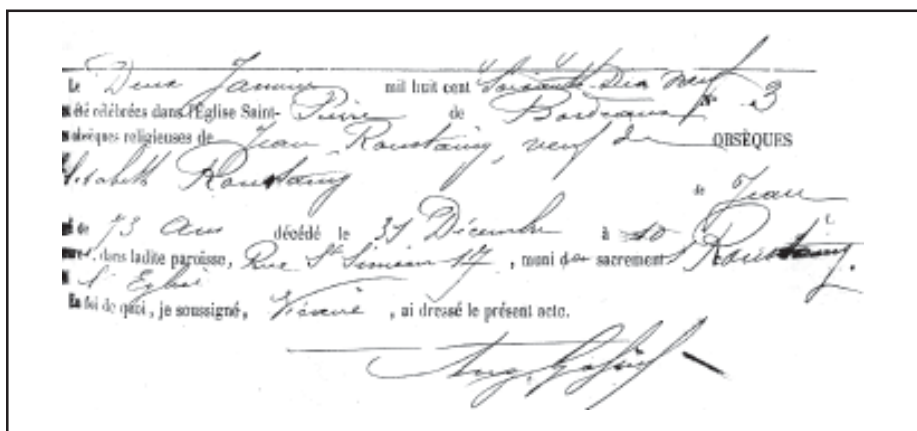 Le Deux Janvier mil huit cent Soixante Dix Neuf
été célébrées dans l'Église Saint- Pierre de Bordeaux N° 3
obsèques religieuses de Jean Roustaing, veuf de OBSÈQUES
Elisabeth Roustaing
de Jean
de 73 Ans décédé le 31 Décembre à 10 Roustaing.
dans ladite paroisse, Rue St Siméon 17, muni des sacrements
l'Église
En foi de quoi, je soussigné, Vicaire, ai dressé le présent acte.